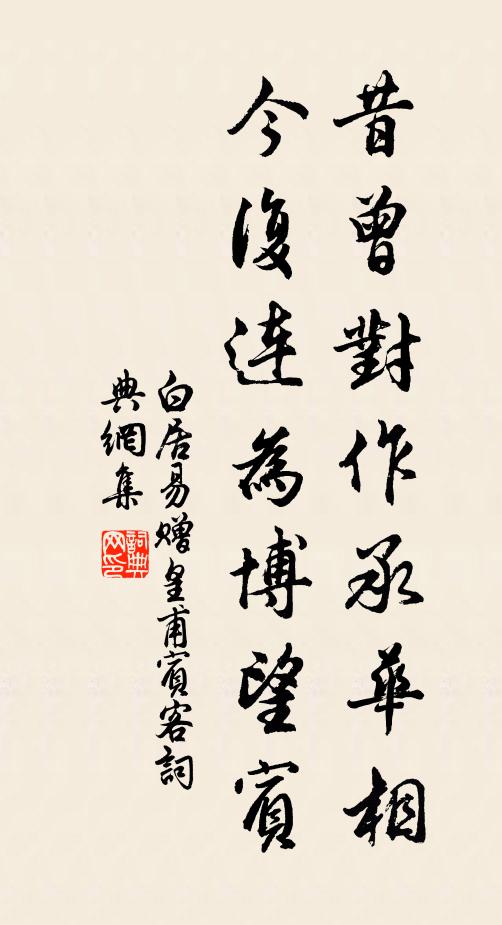 昔曾對作承華相
今復連為博望賓
白居易贈皇甫賓客詞
典網集
詞典网印